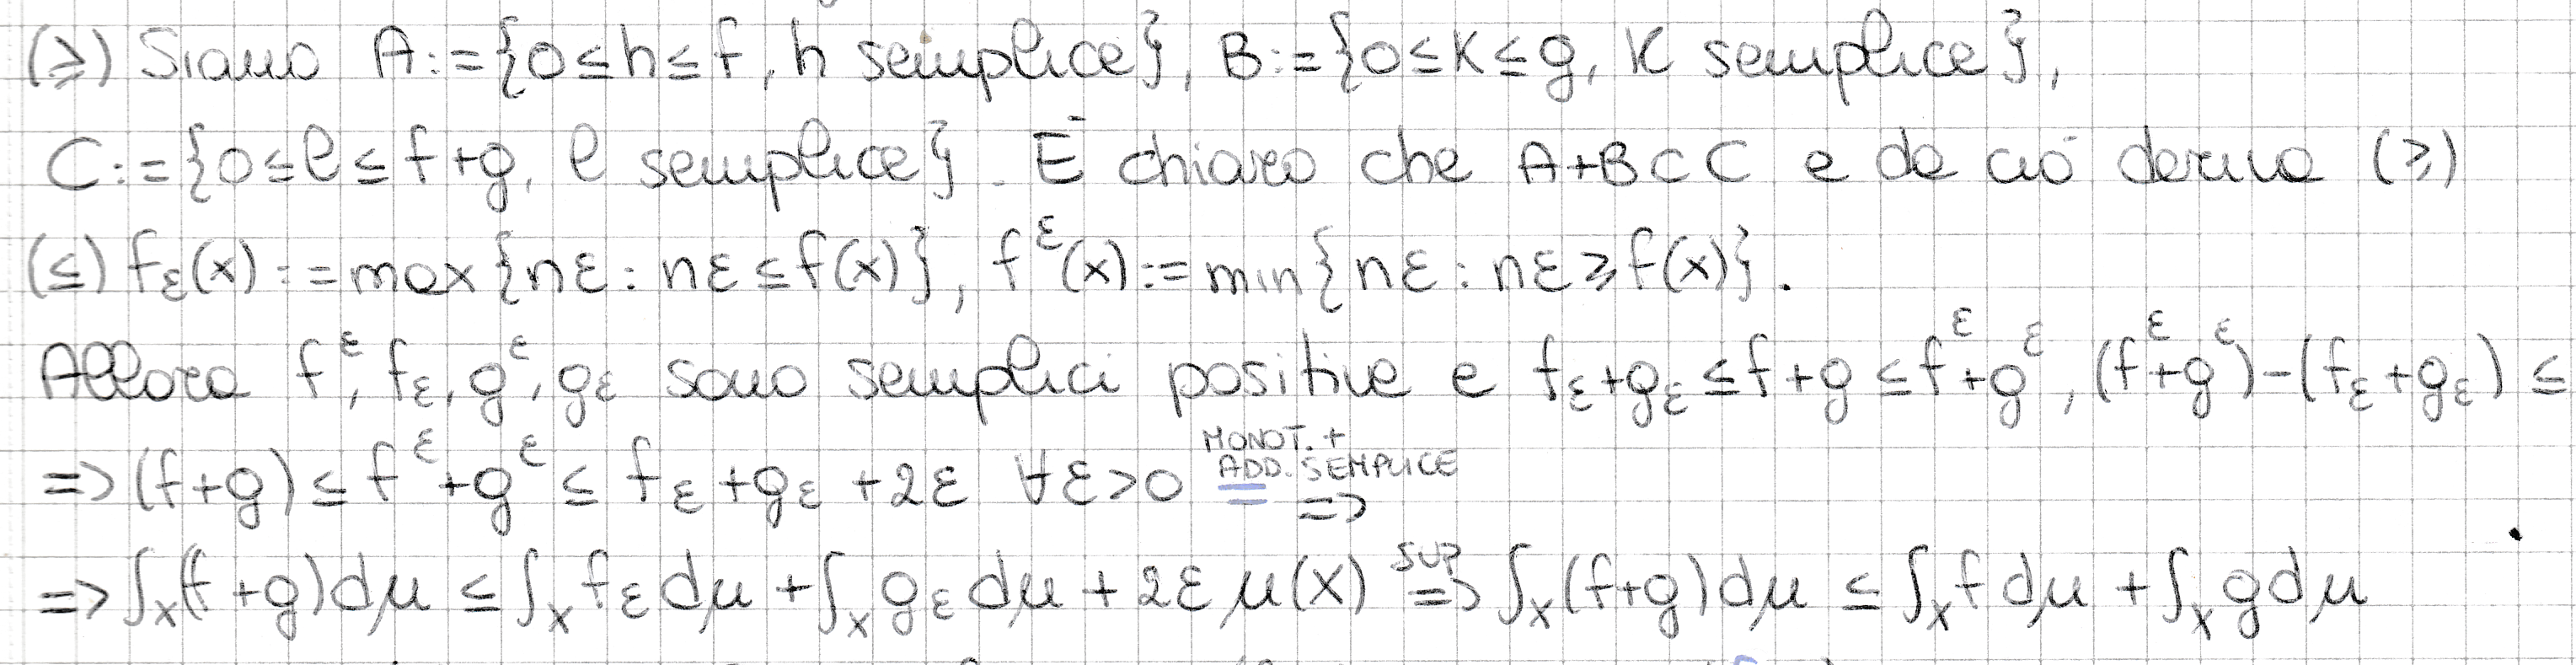 (≥) Siano A:={0≤h≤f, h semplice}, B:={0≤K≤g, K semplice},
C:={0≤l≤f+g, l semplice}. È chiaro che A+B⊂C e da ciò deriva (≥)
(≤) f_ε(x):=max{nε: nε≤f(x)}, f^ε(x):=min{nε: nε≥f(x)}.
Allora f^ε, f_ε, g^ε, g_ε sono semplici positive e f_ε+g_ε≤f+g≤f^ε+g^ε, (f^ε+g^ε)-(f_ε+g_ε)≤
=>(f+g)≤f^ε+g^ε≤f_ε+g_ε+2ε ∀ε>0 MONOT.+ ADD. SEMPLICE =>
=>∫_X(f+g)dμ≤∫_X f_ε dμ+∫_X g_ε dμ+2εμ(X) SUP => ∫_X(f+g)dμ≤∫_X f dμ+∫_X g dμ